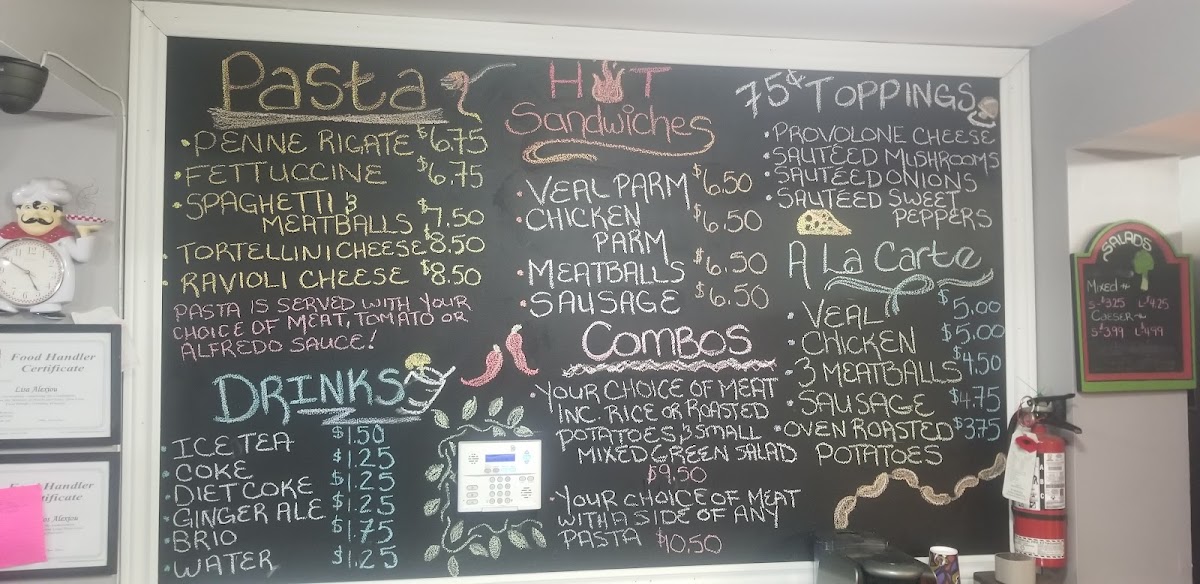 Pasta
• PENNE RIGATE $6.75
• FETTUCCINE $6.75
• SPAGHETTI &
MEATBALLS $7.50
• TORTELLINI CHEESE $8.50
• RAVIOLI CHEESE $8.50
PASTA IS SERVED WITH YOUR
CHOICE OF MEAT, TOMATO OR
ALFREDO SAUCE!
DRINKS
• ICE TEA $1.50
• COKE $1.25
• DIET COKE $1.25
• GINGER ALE $1.25
• BRIO $1.75
• WATER $1.25
HOT
Sandwiches
• VEAL PARM $6.50
• CHICKEN
PARM $6.50
• MEATBALLS $6.50
• SAUSAGE $6.50
COMBOS
• YOUR CHOICE OF MEAT
INC. RICE OR ROASTED
POTATOES & SMALL
MIXED GREEN SALAD
$9.50
• YOUR CHOICE OF MEAT
WITH A SIDE OF ANY
PASTA $10.50
75¢ TOPPINGS
• PROVOLONE CHEESE
• SAUTEED MUSHROOMS
• SAUTEED ONIONS
• SAUTEED SWEET
PEPPERS
A La Carte
• VEAL $5.00
• CHICKEN $5.00
• 3 MEATBALLS $4.50
• SAUSAGE $4.75
• OVEN ROASTED $3.75
POTATOES
SALADS
Mixed
S-$3.25 L-$4.25
Caeser
S-$3.99 L-$4.99
Food Handler
Certificate
Food Handler
Certificate
ABC